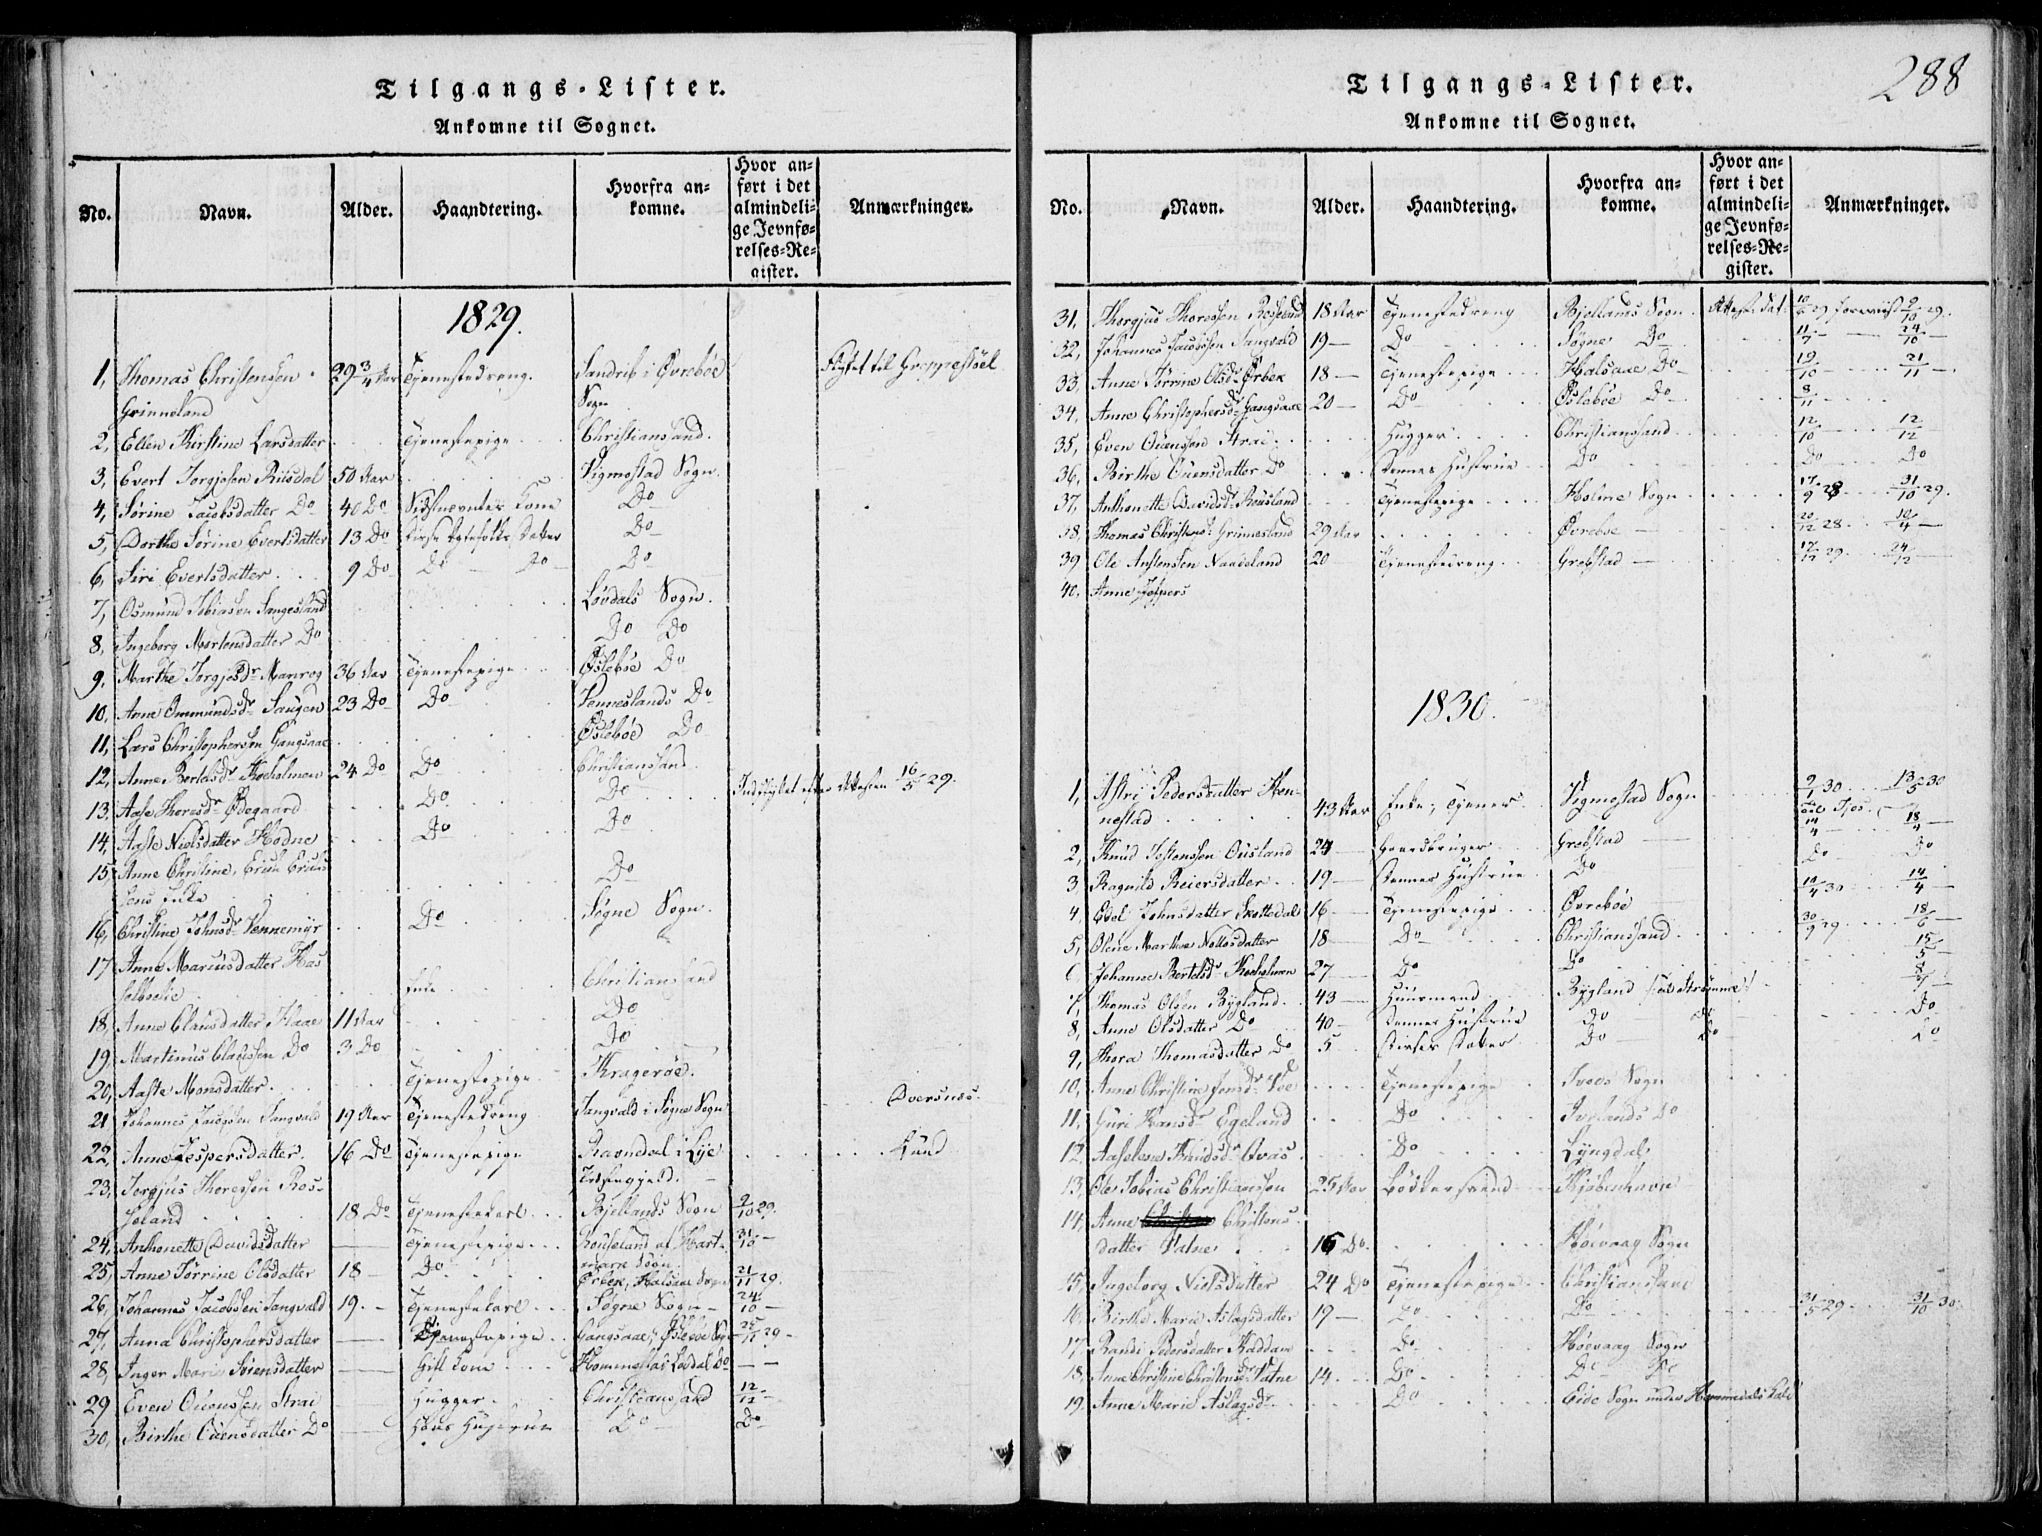 Tilgangs-Lister.
Ankomne til Sognet.
No. Navn. Alder. Haandtering. Hvorfra ankomne. Hvor anført i det almindelige Jevnførelses-Register. Anmærkninger.
1829.
1, Thomas Christensen 29 3/4 Aar Tjenestedreng. Sandrib i Øvrebøe Flyttet til
Grinneland Sogn
2, Ellen Kirstine Larsdatter Tjenestepige Christiansand.
3, Evert Jorgjesen Riisdal 50 Aar Vigmostad Sogn.
4, Sørine Jacobsdatter Do 40 Do Sidstnævntes Kone Do
5, Dorthe Sørine Evertsdatter 13 Do Disse Ægtefolks Datter Do
6, Siri Evertsdatter 9 Do Do Do Do
7, Osmund Tobiasen Løvdals Sogn.
8, Ingeborg Mortensdatter Do Do Do
9, Marthe Jorgjesdr Manrog 36 Aar Tjenestepige Øslebøe Do
10, Anne Ommundsdr Haugen 23 Do Do Venneslands Do
11, Lars Christophersen Gangsaae Øslebøe Do
12, Anne Bertelsdr Kocholmen 24 Do Do Christiansand
13, Aase Thoresdr Ødegaard Do Do Indskyttet efter Attesten 16/5 29.
14, Aaste Nielsdatter Hodne Do Do
15, Anne Christine, Do
sens Enke
16, Christine Johnsdr Vennemyr Do Søgne Sogn.
17 Anne Mariusdatter
Enke Christiansand
18, Anne Clausdatter Flaae 11 Aar Do
19, Martinus Claussen Do 3 Do Do
20, Aaste Monsdatter. Tjenestepige Kragerøe.
21 Johannes Jacobsen Langvald 19 Aar Tjenestedreng Langvald i Søgne Sogn Dversnæs.
22, Anne Jespersdatter. 16 Do Tjenestepige Ravndal i Lye Lund
23, Jorgjus Thoressen Ros- Præstegjeld.
seland 18 Do Tjenestekarl Bjellands Sogn 9/10 29.
24, Anthonette Davidsdatter Tjenestepige Rouseland af Hart- 31/10 —
25, Anne Torrine Olsdatter 18 — Do mark Sogn. Ørbek, Halsaae Sogn 21/11 29.
26, Johannes Jacobsen Langvald 19. — Tjenestekarl Søgne Sogn — 24/10 —
27, Anna Christophersdatter Tjenestepige Gangsaae, Øslebøe Sogn 25/11 29 -
28, Inger Marie Sørensdatter Gift Kone Løvdal Do — —
29 Even Ouensen Strai Hugger. Christiansand 12/12 —
30, Birthe Ouensdatter Do Hans Hustrue Do Do
Tilgangs-Lister.
Ankomne til Sognet.
288
No. Navn. Alder. Haandtering. Hvorfra ankomne. Hvor anført i det almindelige Jevnførelses-Register. Anmærkninger.
31, Thorgjus Thoressen Roseland 18 Aar Tjenestedreng Bjellands Sogn. Attest. Dat. 10/6 29 forevist 9/10 29.
32, Johannes Jacobsen Langvald 19 — Do Søgne Do 11/7 — 24/10 —
33. Anne Tørrine Olsdr Ørbek 18 — Tjenestepige Halsaae Do 19/10 — 21/11 —
34. Anne Christophersdr Gangsaae 20 — Do Øslebøe Do 8/11 —
35, Even Ouensen Strai Hugger Christiansand 12/10 12/12
36, Birthe Ouensdatter Do Dennes Hustrue Do Do Do
37, Anthonette Davidsdr Rousland Tjenestepige Holme Sogn 17/9 28 31/10 29.
38, Thomas Christens. Grinnesland 29 Aar Øvrebøe — 20/12 28 10/4 —
39 Ole Anstensen Naadeland 20 — Tjenestedreng Grebstad — 17/12 29 24/12 —
40. Anne Jespers
1830.
1, Astri Pedersdatter Hen- 43 Aar Enke, Tjener Vigmostad Sogn 2/1 30 13/5 30
nestad
2, Knud Testensen Ousland 24 — Gaardbruger Grebstad — 14/4 — 18/4 —
3 Ragnild Reiersdatter 19 — Dennes Hustrue Do Do Do
4, Edel Johnsdatter Skottedal 16 — Tjenestepige Øvrebøe 10/4 30 14/4 —
5, Olene Marthea Nellesdatter 18 — Do Christianssand 30/9 29 18/6 —
6 Johanne Bertelsdr Kocholmen 27 — Do Do 15/5 —
7, Thomas Olsen Bygland 43 — Huusmand Bygland 8/7 —
8, Anne Olsdatter Do 40 — Dennes Hustrue Do Do Do
9, Thora Thomasdatter Do 5 Disses Datter Do Do Do
10, Anne Christine Jensdr Voe Tjenestepige Sogn
11, Guri Hansdr Egeland Do Ivelands Do
12, Aaselene Knudsdr Do Lyngdal
13, Ole Tobias Christiansen 25 Aar Bødkersvend Kjøbenhavn
14, Anne Christens
datter Vatne 16 Do. Høevaag Sogn
15, Ingeborg Nielsdatter 24 Do Tjenestepige Christiansand
16, Birthe Marie Aslagsdatter 19 — Do Do 31/5 29 31/10 30
17, Randi Pedersdatter Kaddam Do Høevaag Sogn
18, Anne Christine Christensdr Vatne 14 — Do Do Do
19, Anne Marie Aslagsdr Do Eide Sogn under